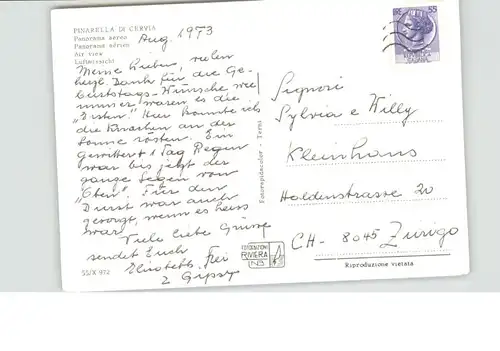 PINARELLA DI CERVIA
Panorama aereo
Panorama aérien
Air view
Luftansicht
Aug. 1973
Meine Lieben, vielen
herzl. Dank für die Ge-
burtstags-Wünsche wie
immer waren es die
"Ersten." Hier konnte ich
die Knochen an der
Sonne rösten. Ein
Gewitter + 1 Tag Regen
war bis jetzt der
ganze Segen von
"Oben". Für den
Durst war auch
gesorgt, wenn es heiss
war.
Viele liebe Grüsse
sendet Euch
Elisabeth Frei
& Gipsy
55/X 972
Fotocolor - Terni
EDIZIONI
RIVIERA
Signori
Sylvia e Willy
Kleinhans
Haldenstrasse 20
CH - 8045 Zürigo
Riproduzione vietata
55